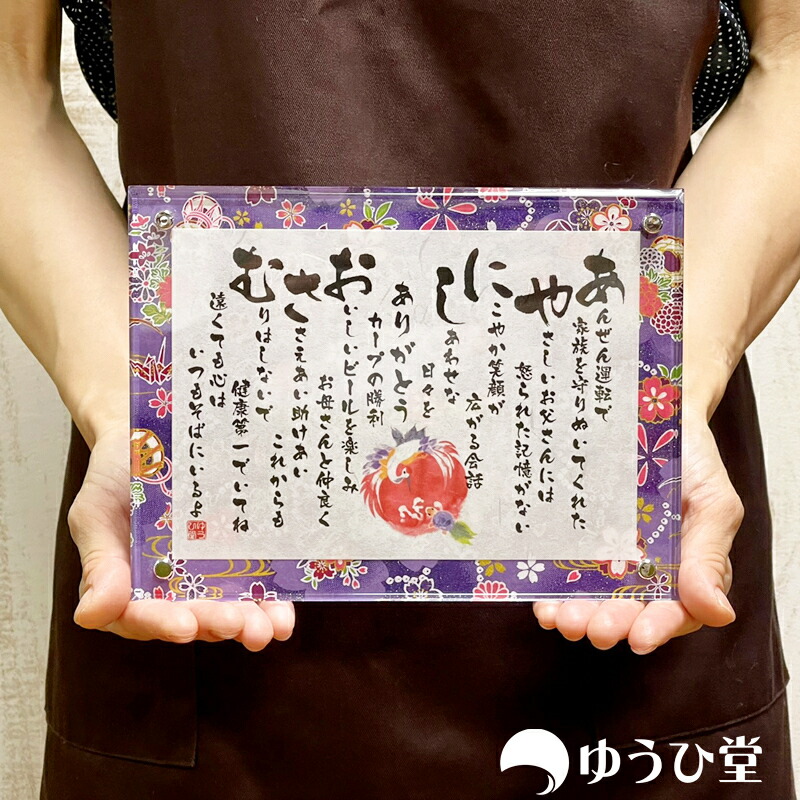 あんぜん運転で
家族を守りぬいてくれた
やさしいお父さんには
怒られた記憶がない
にこやか笑顔が
広がる会話
しあわせな
日々を
ありがとう
カープの勝利
おいしいビールを楽しみ
お母さんと仲良く
ささえあい助けあい
これからも
むりはしないで
健康第一でいてね
遠くても心は
いつもそばにいるよ
ゆうひ堂
ゆうひ堂